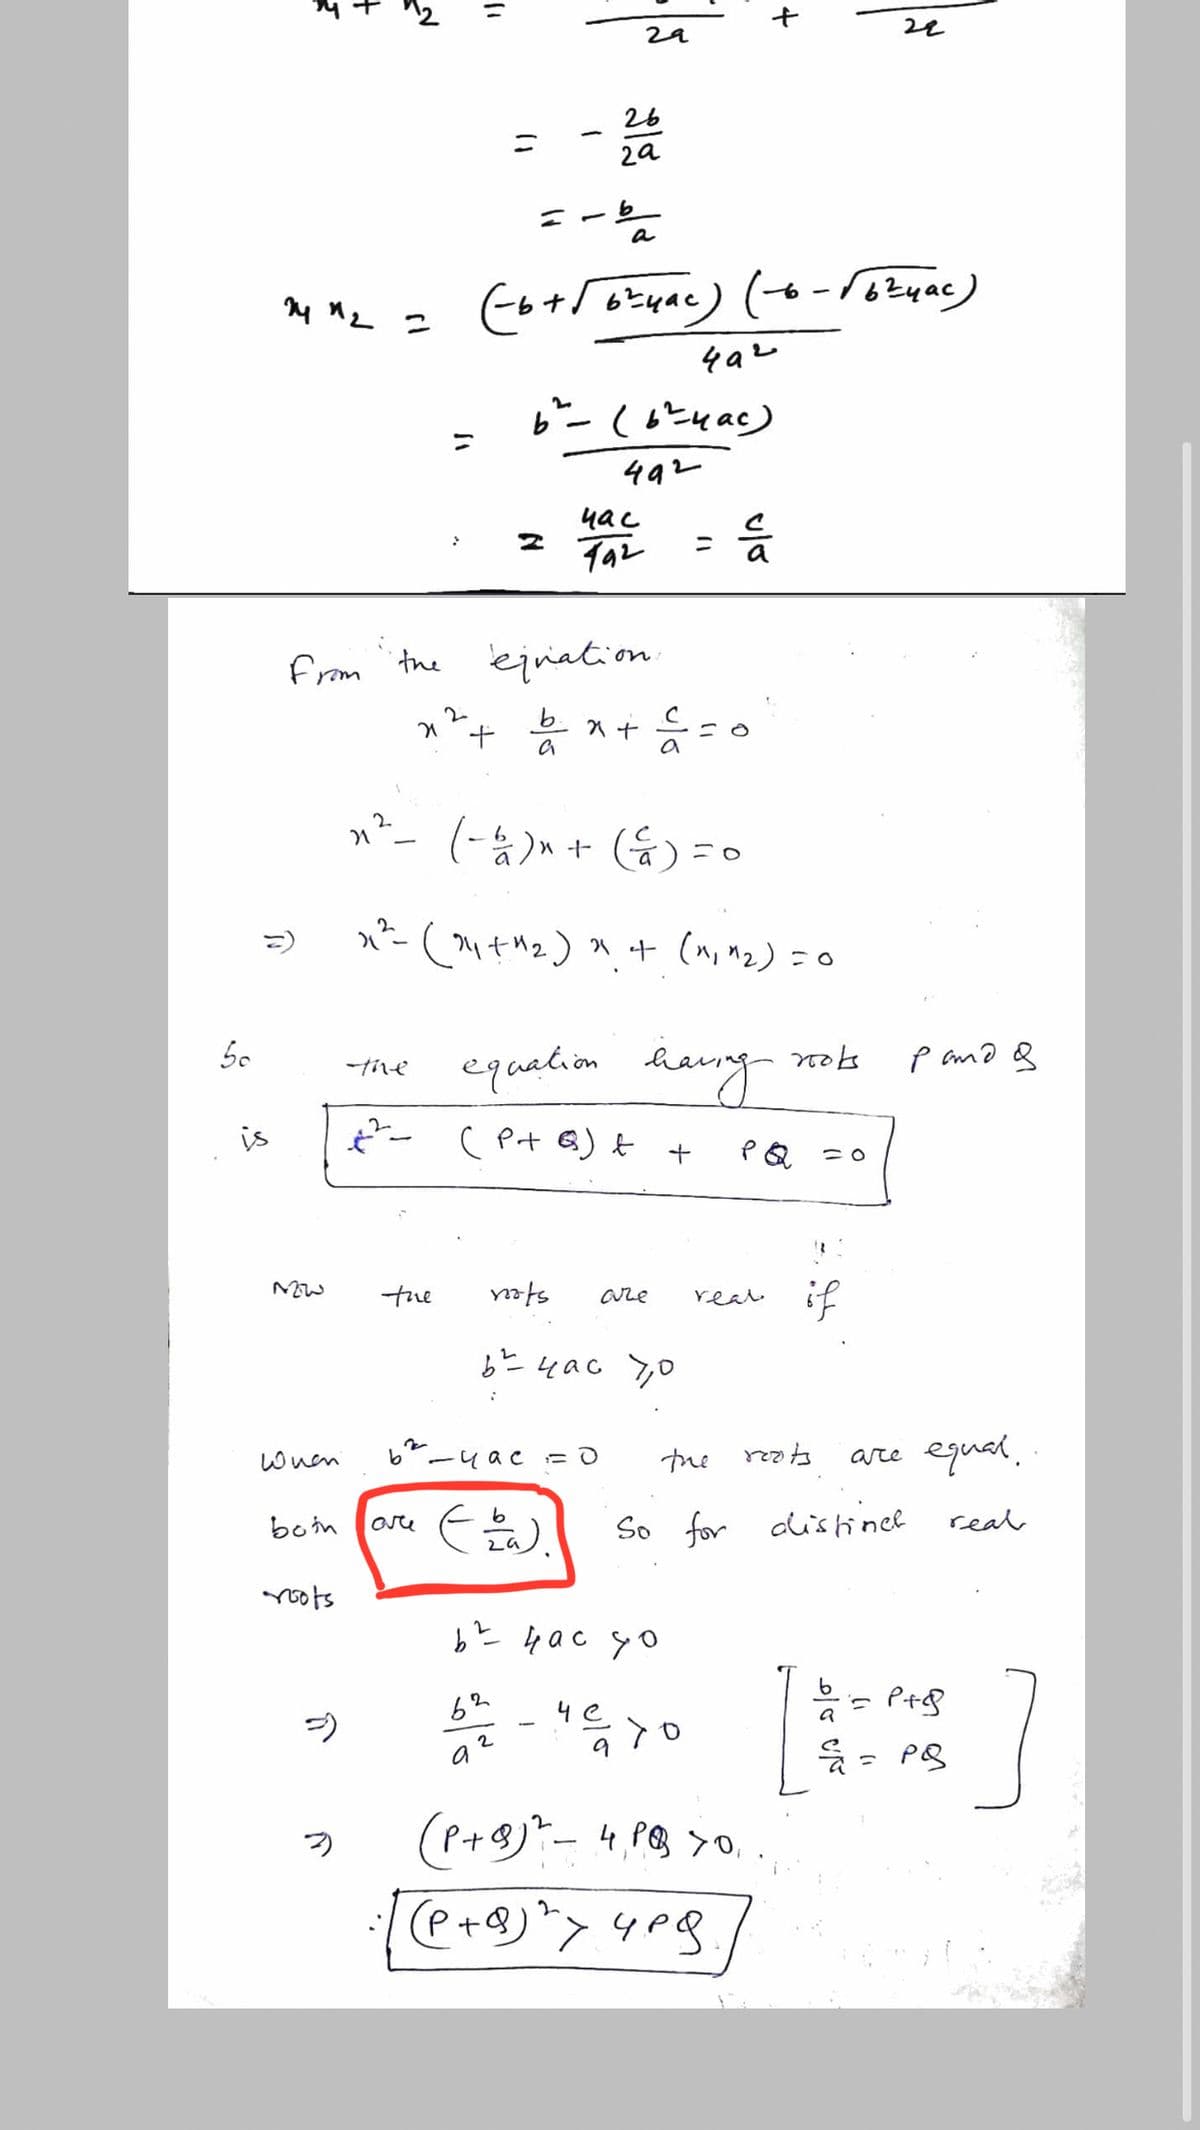 x₁ + x₂ = / 2a + / 2a
= - 2b/2a
= - b/a
x₁ x₂ = (-b+√b²-4ac) (-b-√b²-4ac) / 4a²
= b² - (b²-4ac) / 4a²
= 4ac/4a² = c/a
From the equation
x² + b/a x + c/a = 0
x² - (-b/a)x + (c/a) = 0
⇒ x² - (x₁+x₂) x + (x₁x₂) = 0
So the equation having roots P and Q
is t² - (P+Q) t + PQ = 0
Now the roots are real if
b² - 4ac ≥ 0
When b² - 4ac = 0 the roots are equal.
both are (-b/2a). So for distinct real
roots
b² - 4ac > 0
⇒ b²/a² - 4 c/a > 0 [ b/a = P+Q
c/a = PQ ]
⇒ (P+Q)² - 4PQ > 0.
∴ (P+Q)² > 4PQ.